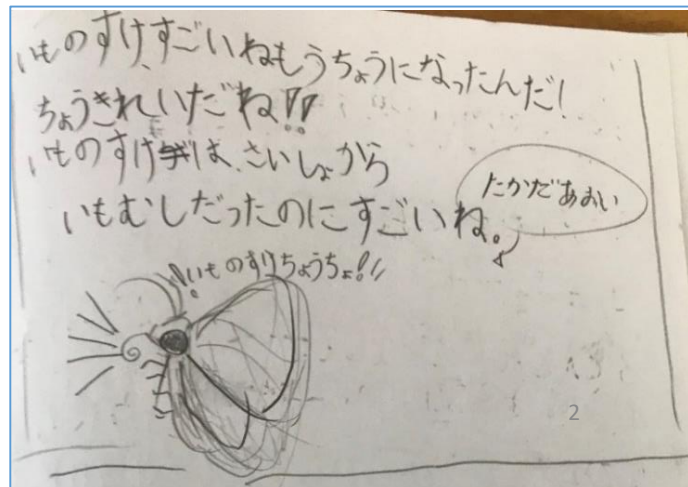 いものすけ、すごいねもうちょうになったんだ!
ちょうきれいだね!!
いものすけは、さいしょから
いもむしだったのにすごいね。
たかだあおい
!いものすけちょうちょ!!
2